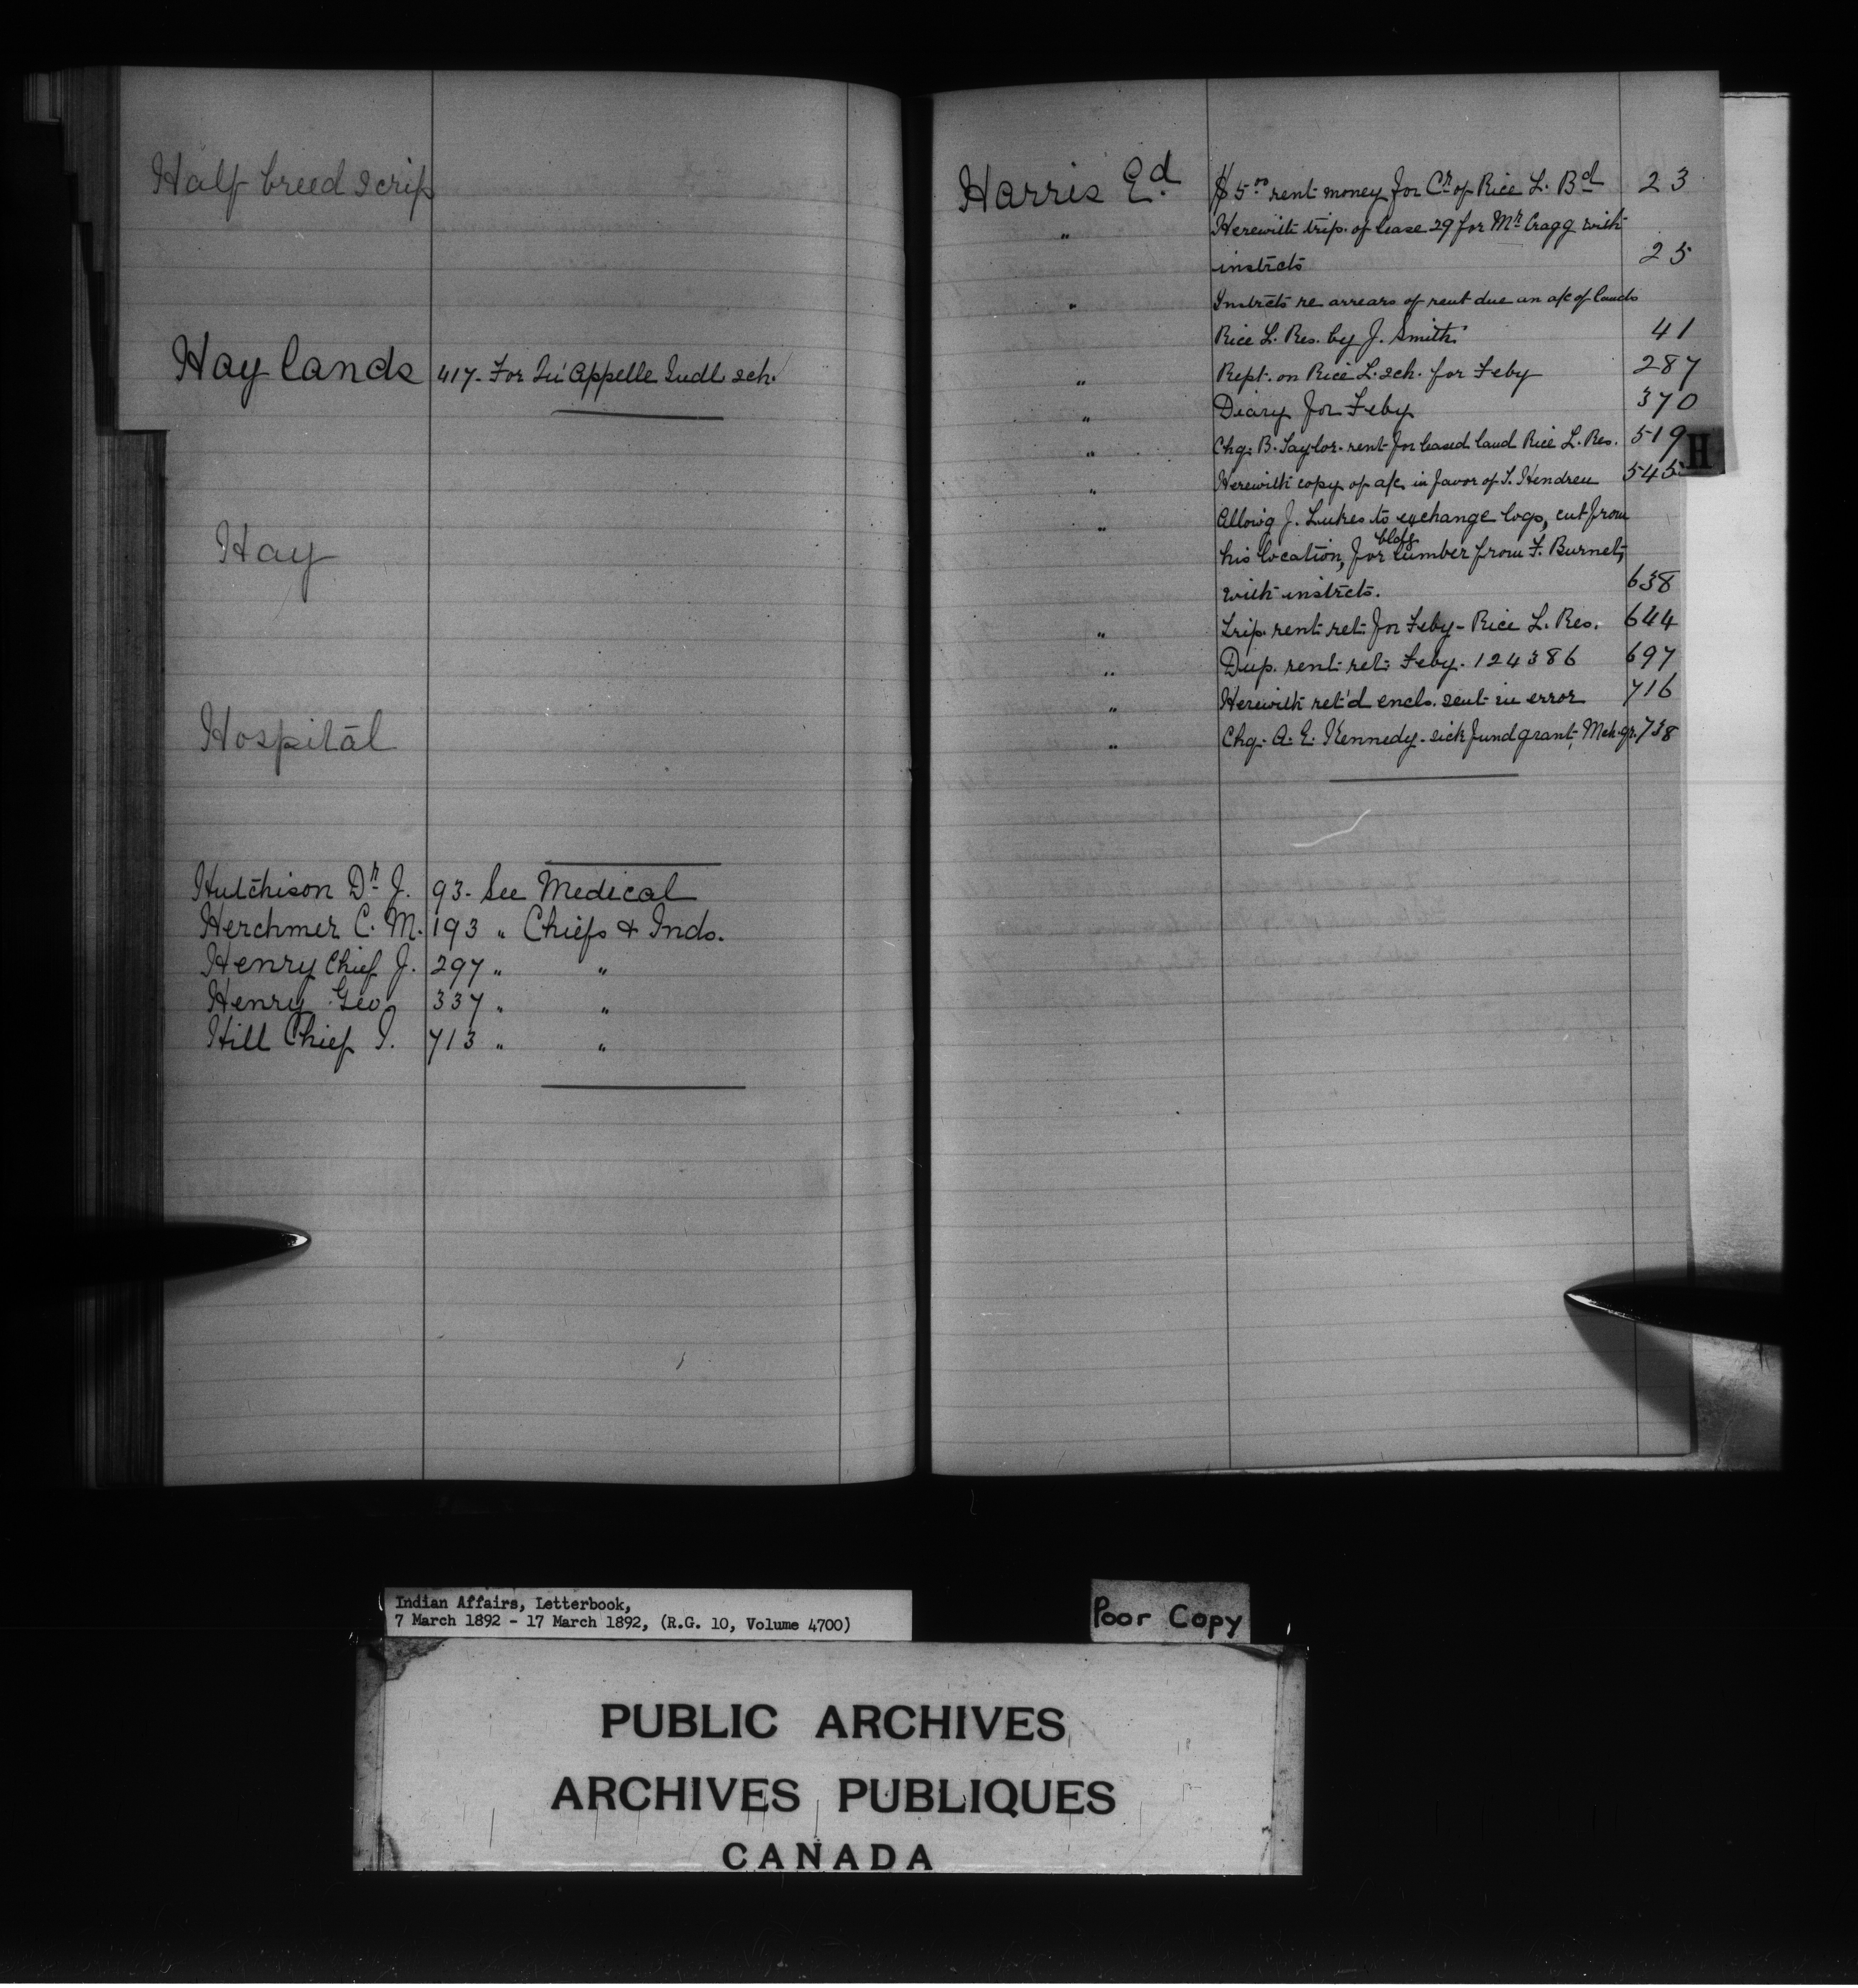 Half breed scrip
Hay lands 417- For Qu'Appelle Indl. sch.
Hay
Hospital
Hutchison Dr. J. 93- See Medical
Herchmer C. M. 193 " Chiefs & Inds.
Henry Chief J. 297 " "
Henry Geo 337 " "
Hill Chief I. 713 " "
Harris Ed. $5.00 rent money for Cr. of Rice L. Bd 23
" Herewith trip. of lease 29 for Mr. Cragg with
instrcts 25
" Instrcts re arrears of rent due an a/c of lands
Rice L. Res. by J. Smith. 41
" Rept. on Rice L. sch. for Feby 287
" Diary for Feby 370
" Chq. B. Taylor- rent for leased land Rice L. Res. 519
H
" Herewith copy of a/c in favor of T. Hendren 545
" Allow'g J. Lukes to exchange logs, cut from
his location, for bldg lumber from F. Burnet,
with instrcts. 638
" Trip. rent ret. for Feby - Rice L. Res. 644
" Dup. rent ret. Feby. 124386 697
" Herewith ret'd encls. sent in error 716
" Chq. A. E. Kennedy- sick fund grant, Mch. qr. 738
Indian Affairs, Letterbook,
7 March 1892 - 17 March 1892, (R.G. 10, Volume 4700)
Poor Copy
PUBLIC ARCHIVES
ARCHIVES PUBLIQUES
CANADA